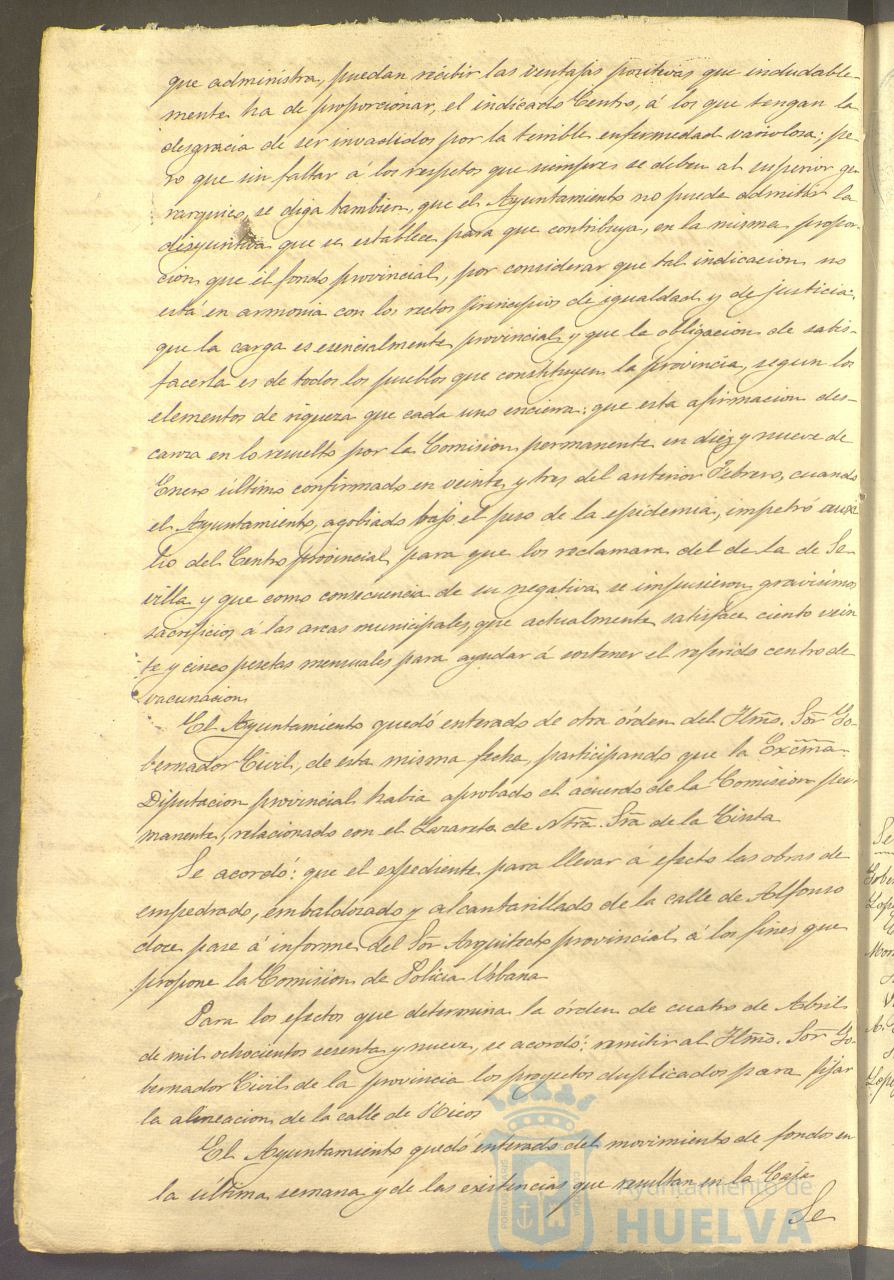 que administra, puedan recibir las ventajas positivas que indudable-
mente ha de proporcionar, el indicado Centro, á los que tengan la
desgracia de ser invadidos por la terrible enfermedad variolosa; pe-
ro que sin faltar á los respetos que siempre se deben al superior ge-
rarquico, se diga tambien, que el Ayuntamiento no puede admitir la
disyuntiva que se establece para que contribuya, en la misma propor-
ción que el fondo provincial, por considerar que tal indicacion no
está en armonia con los rectos principios de igualdad y de justicia,
que la carga es esencialmente provincial y que la obligacion de satis-
facerla es de todos los pueblos que constituyen la provincia, segun los
elementos de riqueza que cada uno encierra: que esta afirmacion des-
canza en lo resuelto por la Comision permanente en diez y nueve de
Enero último confirmado en veinte y tres del anterior Febrero, cuando
el Ayuntamiento, agobiado bajo el peso de la epidemia, impetró auxi-
lio del Centro provincial para que los reclamara del de la de Se-
villa y que como consecuencia de su negativa se impusieron gravisimos
sacrificios á las arcas municipales, que actualmente satisface ciento vein-
te y cinco pesetas mensuales para ayudar á sostener el referido centro de
vacunacion.
El Ayuntamiento quedó enterado de otra órden del Iltmo. Sor Go-
bernador Civil, de esta misma fecha, participando que la Excma
Diputacion provincial habia aprobado el acuerdo de la Comision per-
manente, relacionado con el Lazareto de Ntra. Sra de la Cinta
Se acordó: que el expediente, para llevar á efecto las obras de
empedrado, embaldozado y alcantarillado de la calle de Alfonso
doce, pase á informe, del Sor Arquitecto provincial á los fines que
propone la Comision de Policia Urbana
Para los efectos que determina la órden de cuatro de Abril
de mil ochocientos sesenta y nueve, se acordó: remitir al Iltmo. Sor Go-
bernador Civil de la provincia los proyectos duplicados para fijar
la alineacion de la calle de Ricos
El Ayuntamiento quedó enterado del movimiento de fondos en
la última semana y de las existencias que resultan en la Caja
Se
Ayuntamiento de
HUELVA